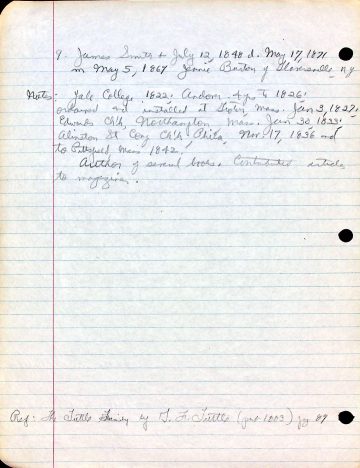 9. James Smith + July 12, 1848 d. May 17, 1871
m May 5, 1867 Jennie Burton of Gloversville N.Y.
Notes: Yale College, 1822; Andover 4 yr to 1826;
ordained and installed at Groton, Mass. Jan 3, 1827;
Edwards Ch'h, Northampton Mass. Jan 30 1833;
Clinton St Cong Ch'h Phila, Nov. 17, 1836 and
to Pittsfield Mass 1842.
Author of several books. Contributed articles
to magazines.
Ref: The Tuttle Family by G. F. Tuttle (pub-1883) pg 89